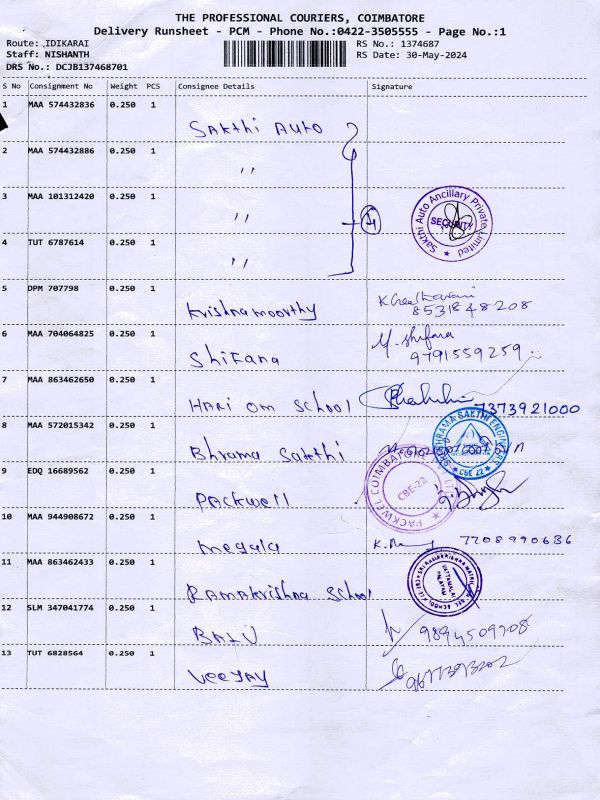 THE PROFESSIONAL COURIERS, COIMBATORE
Delivery Runsheet - PCM - Phone No.:0422-3505555 - Page No.:1
Route: IDIKARAI RS No.: 1374687
Staff: NISHANTH RS Date: 30-May-2024
DRS No.: DCJB137468701
S No Consignment No Weight PCS Consignee Details Signature
1 MAA 574432836 0.250 1
Sakthi Auto
2 MAA 574432886 0.250 1
,,
3 MAA 101312420 0.250 1
,,
Sakthi Auto Ancillary Private Limited
SECURITY
4 TUT 6787614 0.250 1
,,
5 DPM 707798 0.250 1
Krishnamoorthy
8531848208
6 MAA 704064825 0.250 1
Shifana M. Shifana
9791559259
7 MAA 863462650 0.250 1
HARI OM SCHOOL 7373921000
8 MAA 572015342 0.250 1
Bhrama Sakthi
CBE-22
9 EDQ 16689562 0.250 1
Packwell
PACKWEL COIMBATORE
CBE-22
10 MAA 944908672 0.250 1
megala 7208990636
11 MAA 863462433 0.250 1
Ramakrishna School
12 SLM 347041774 0.250 1
BALU 9894509708
13 TUT 6828564 0.250 1
VEEJAY